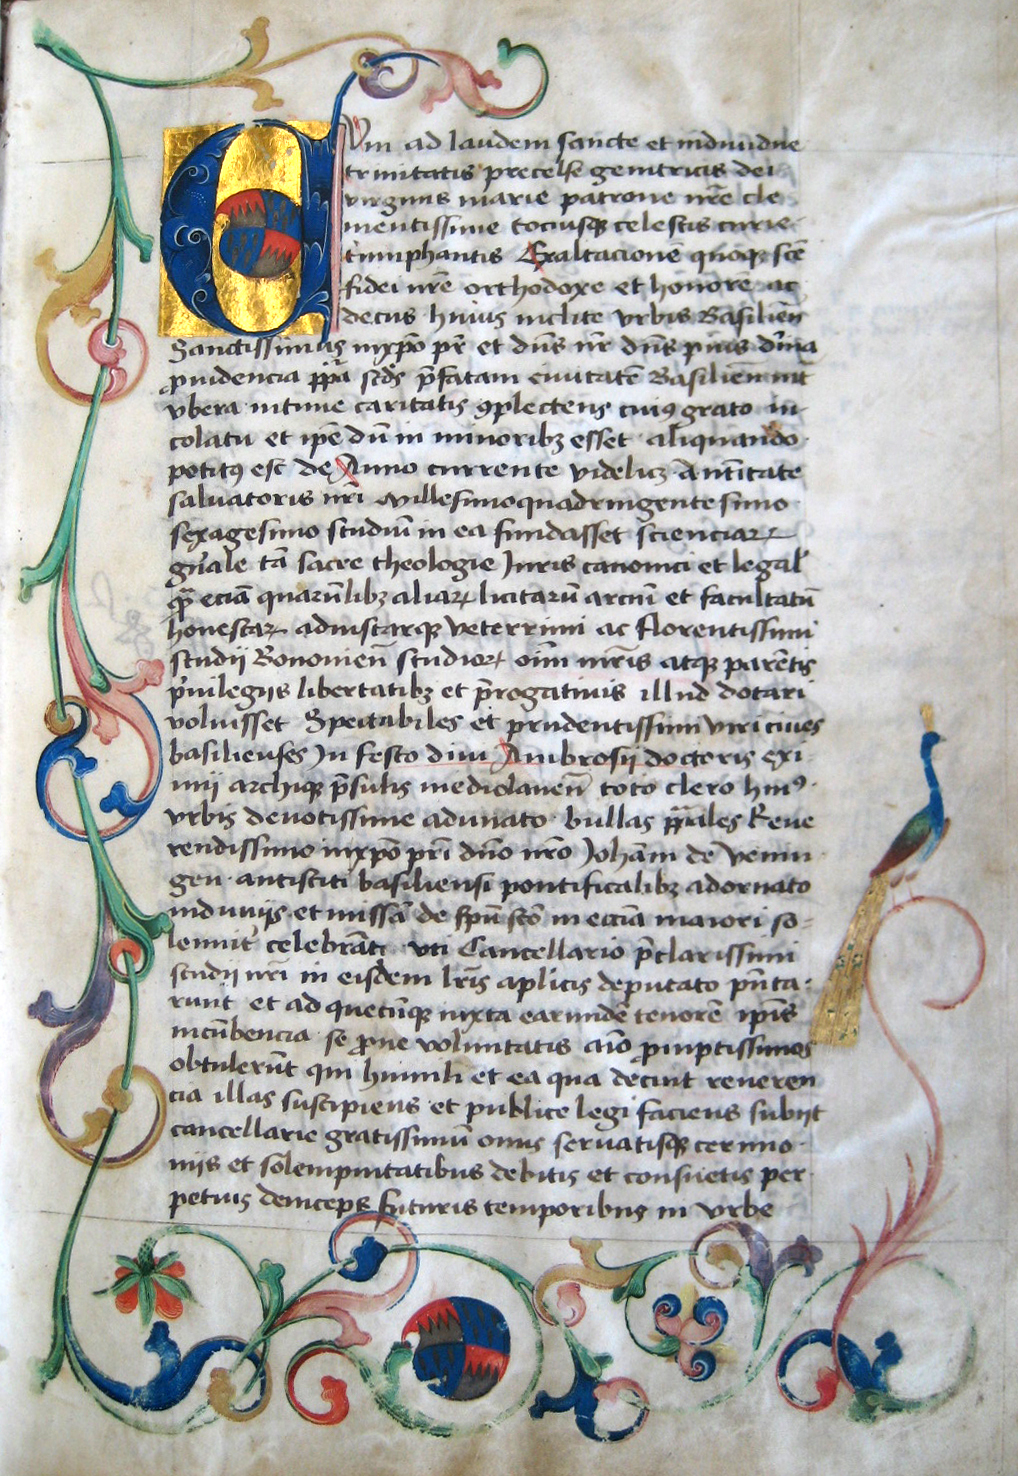 Cum ad laudem sancte et indiuidue
trinitatis precelse genitricis dei
virginis marie patrone nr̄e cle
mentissime tociusq̨ celestis curie
triumphantis Exaltacionē quoq̨ scē
fidei nr̄e orthodoxe et honorē ac
decus huius inclite vrbis Basilien̄
Sanctissimus inxp̄o pr̄ et dn̄s nr̄ dn̄s pius diuīa
ꝓuidencia pp̄a scd̄s p̄fatam ciuitatē Basilien̄ int̄
vbera intime caritatis ꝯplectens cuiꝰ grato in-
colatu et ip̄e dū in minoribꝫ esset aliquando
potitꝰ est de Anno currente videlicꝫ A natītate
saluatoris nr̄i Millesimoquadringentesimo
sexagesimo studiū in ea fundasset scienciaꝝ
gn̄ale tā sacre theologie Iuris canonici et legal̄
qᷓ eciā quarūlibꝫ aliaꝝ licitarū arciū et facultatū
honestaꝝ adinstarq̨ veterrimi ac florentissimi
studii Bononien̄ studioꝝ oīm mr̄is atq̨ parētis
p̄uilegijs libertatibꝫ et p̄rogatiuis illud dotari
voluisset Spectabiles et prudentissimi viri ciues
basilienses In festo diui Ambrosij doctoris exi-
mij archiq̨ p̄sulis mediolanen̄ toto clero huiꝰ
vrbis deuotissime adunato bullas pp̄ales Reue
rendissimo inxp̄o pr̄i dn̄o nr̄o Joham̄ de Venin
gen antistiti basiliensi pontificalibꝫ adornato
induuijs et missā de sp̄u sc̄o in ecc̄ia maiori so-
lenniter celebrāti vti Cancellario p̄clarissimi
studij nr̄i in eisdem lr̄is ap̄licis deputato pn̄ta-
runt et ad quecūq̨ iuxta earundē tenorē ip̄is
incūbencia se ꝓne voluntatis aīo ꝓmptissimos
obtulerūt qui humili et ea qua decuit reueren
cia illas suscipiens et publice legi faciens subijt
cancellarie gratissimū onus seruatisq̨ cerimo-
nijs et solempnitatibus debitis et consuetis per-
petuis deinceps futuris temporibus in vrbe